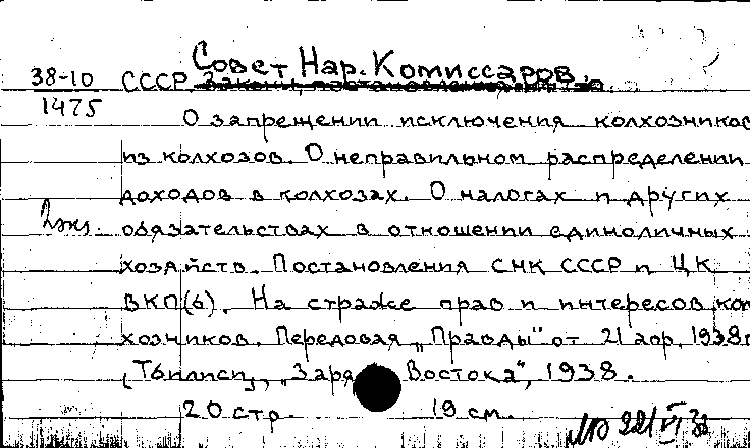 Совет Нар. Комиссаров.
38-10 СССР
1475
О запрещении исключения колхозников
из колхозов. О неправильном распределении
доходов в колхозах. О налогах и других
2экз. обязательствах в отношении единоличных
хозяйств. Постановления СНК СССР и ЦК
ВКП(б). На страже прав и интересов кол
хозников. Передовая „Правды" от 21 апр. 1938г
[Тбилиси], „Заря Востока", 1938.
20 стр. 19 см.